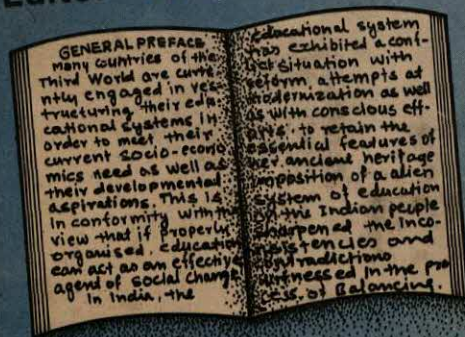 GENERAL PREFACE
Many countries of the
Third World are curre
ntly engaged in res
tructuring their edu
cational systems in
order to meet their
current socio-econo
mics need as well as
their developmental
aspirations. This is
in conformity with the
view that if properly
organised, education
can act as an effective
agend of social change
In India, the
educational system
has exhibited a conf-
situation with
reform, attempts at
modernization as well
as with conscious eff-
orts, to retain the
essential features of
her ancient heritage
imposition of a alien
system of education
on this Indian people
sharpened the inco-
sistencies and
contradictions
witnessed in the pro
cess of Balancing.